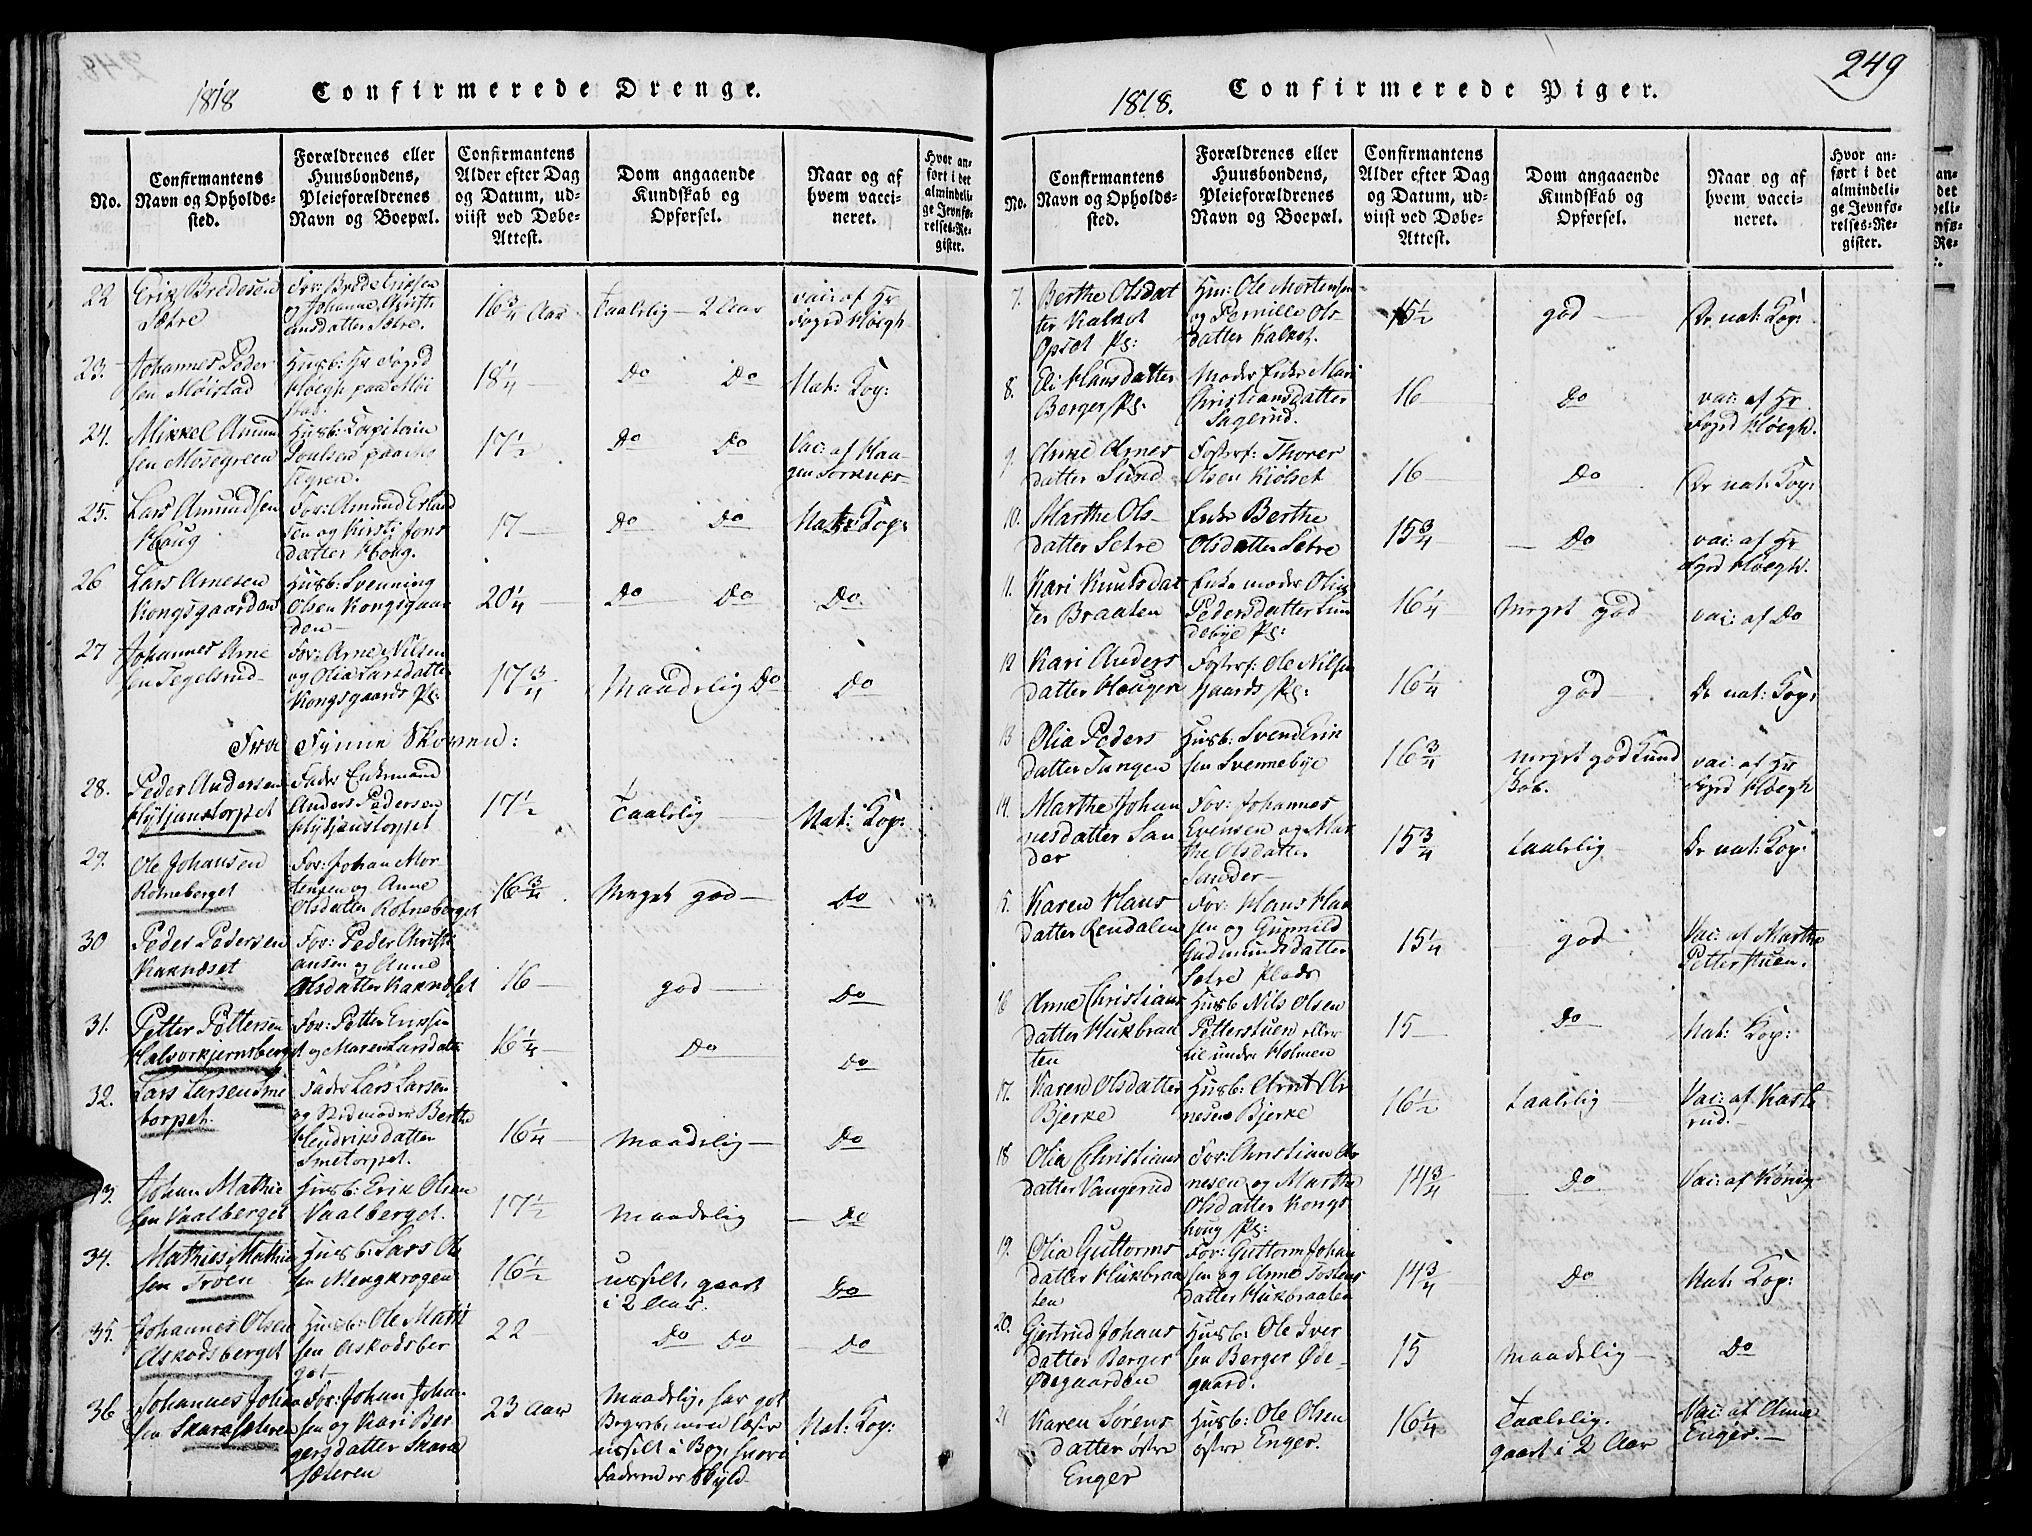 249
1818 Confirmerede Drenge.
No.
Confirmantens Navn og Opholdssted.
Forældrenes eller Huusbondens, Pleieforældrenes Navn og Boepæl.
Confirmantens Alder efter Dag og Datum, udviist ved Døbe-Attest.
Dom angaaende Kundskab og Opførsel.
Naar og af hvem vaccineret.
Hvor anført i det almindelige Jevnførelses-Register.
22 Erik Bredesøn Sætre
For: Brede Erichsen og Johanne Christiansdatter Sætre.
16 3/4 Aar
Taalelig – 2 Aar
vac: af Hr Fogd Høegh
23. Johannes Pedersen Møistad
Husb: Hr Fogd Høegh paa Møistad.
18 1/4
Do Do
Nat: Kop:
24. Mikkel Amundsen Mosegreen
Husb: Capitain Poulsen paa
17 1/2
Do Do
Vac: af Haagen Sorknes
25. Lars Amundsen Houg
For: Amund Erland og Kirsti Jonsdatter Houg.
17
Do Do
Nat: Kop:
26 Lars Arnesen Kongsgaarden
Husb: Svenning Olsen Kongsgaarden
20 1/4
Do Do
Do.
27 Johannes Arnesen Tegelsrud
For: Arne Nilsen og Olia Larsdatter Kongsgaards Pl:
17 3/4
Maadelig Do
Do
Fra Finne Skoven:
28. Peder Andersen Hytjanstorpet
Fader Enkemand Anders Pedersen Hytjanstorpet
17 1/2
Taalelig
Nat: Kop:
29. Ole Johansen Rotneberget
For: Johan Mortensen og Anne Olsdatter Rotneberget
16 3/4
Meget god
Do
30 Peder Pedersen Kaknæset
For: Peder Christiansen og Anne Olsdatter Kaknæset
16
god
Do
31. Petter Pettersen Halvorkjernsberget
For: Petter Erichsen og Maren Larsdatter
16 1/4
Do
Do
32. Lars Larsen Smetorpet.
Fader Lars Larsen og Stedmoder Berthe Hendriksdatter Smetorpet.
16 1/4
Maadelig
Do
33. Johan Mathiesen Vaalberget
Husb: Erik Olsen Vaalberget.
17 1/2
Maadelig
Do
34. Mathies Mathiesen Troen
Husb: Lars Olsen Mengkrogen
16 1/2
usselt, gaaet i 2 Aar.
Do
35. Johannes Olsen Askodsberget
Husb: Ole Mathisen Askodsberget
22
Do Do
Do
36 Johannes Johansen Skaraseteren
For: Johan Johansen og Kari Bergersdatter Skarasæteren
23 Aar
Maadelig, har got Begreb, men læser usselt i Bog, hvori Faderen er Skyld
Nat: Kop:
1818. Confirmerede Piger.
No.
Confirmantens Navn og Opholdssted.
Forældrenes eller Huusbondens, Pleieforældrenes Navn og Boepæl.
Confirmantens Alder efter Dag og Datum, udviist ved Døbe-Attest.
Dom angaaende Kundskab og Opførsel.
Naar og af hvem vaccineret.
Hvor anført i det almindelige Jevnførelses-Register.
7. Berthe Olsdatter Kalset Opset Pl:
Ole Mortensen og Pernille Olsdatter Kalset.
15 1/2
god
Nat: Kop:
8. Eli Hansdatter Berger Pl:
Moder Enke Mari Christiansdatter Sagerud.
16
Do
vac: af Hr Fogd Høegh.
9. Anne Arnesdatter Sund
Fosterf: Thorer Olsen Kiølset
16
Do
nat: Kop:
10. Marthe Olsdatter Setre
Enke Berthe Olsdatter Setre
15 3/4
Do
vac: af Hr Fogd Høegh.
11. Kari Knutsdatter Braaten
Enke moder Olia Pedersdatter Lundebye Pl:
16 1/4
Meget god
vac: af Do
12 Kari Andersdatter Hougen
Fosterf: Ole Nilsen Gaards Pl:
16 1/4
god
nat: Kop:
13 Olia Pedersdatter Tangen
Husb: Svend Eriksen Svennebye
16 3/4
meget god Kundskab.
vac: af Hr Fogd Høegh
14. Marthe Johannesdatter Sander
For: Johannes Evensen og Marthe Olsdatter Sander
15 3/4
taalelig
nat: Kop:
15. Karen Hansdatter Rendalen
For: Hans Hansen og Gunnild Gudmundsdatter Setre Plads
15 1/4
god
Vac: af Marthe Petterstuen.
16 Anne Christiansdatter Hukbraaten
Husb: Nils Olsen Petterstuen eller Lie under Holmen
15
Do
Nat: Kop:
17. Karen Olsdatter Bjerke
Husb: Arnt Arnesen Bjerke
16 1/2
taalelig
Vac: af Kasterud.
18 Olia Christiansdatter Vangerud
For: Christian Arnesen og Marthe Olsdatter Kongshoug Pl:
14 3/4
Do
Vac: af König
19. Olia Guttormsdatter Hukbraaten
For: Guttorm Johansen og Anne Tostensdatter Hukbraaten
14 3/4
Do
Nat: Kop:
20. Gjertrud Johansdatter Berger Ødegaarden
Husb: Ole Iversen Berger Ødegaard.
15
Maadelig
Do
21 Karen Sørensdatter østre Enger
Husb: Ole Olsen østre Enger.
16 1/4
Taalelig. gaaet i 2 Aar
Vac: af Anne Enger.